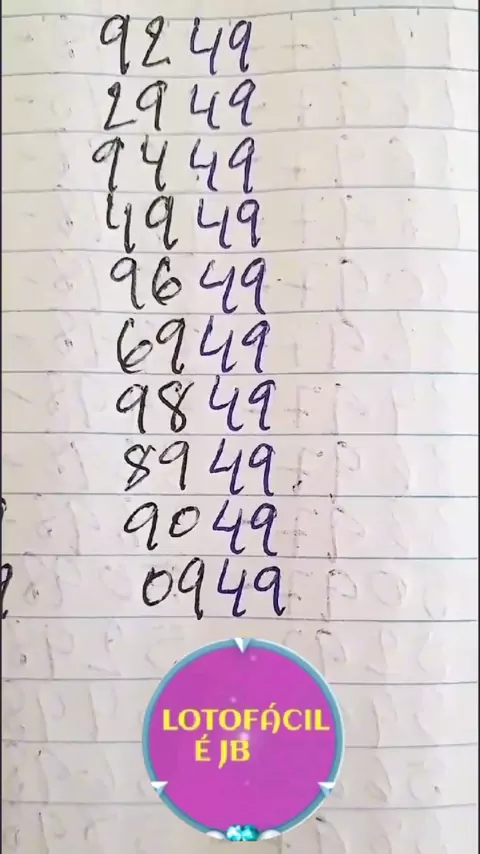 9249
2949
9449
4949
9649
6949
9849
8949
9049
0949
LOTOFÁCIL
É JB